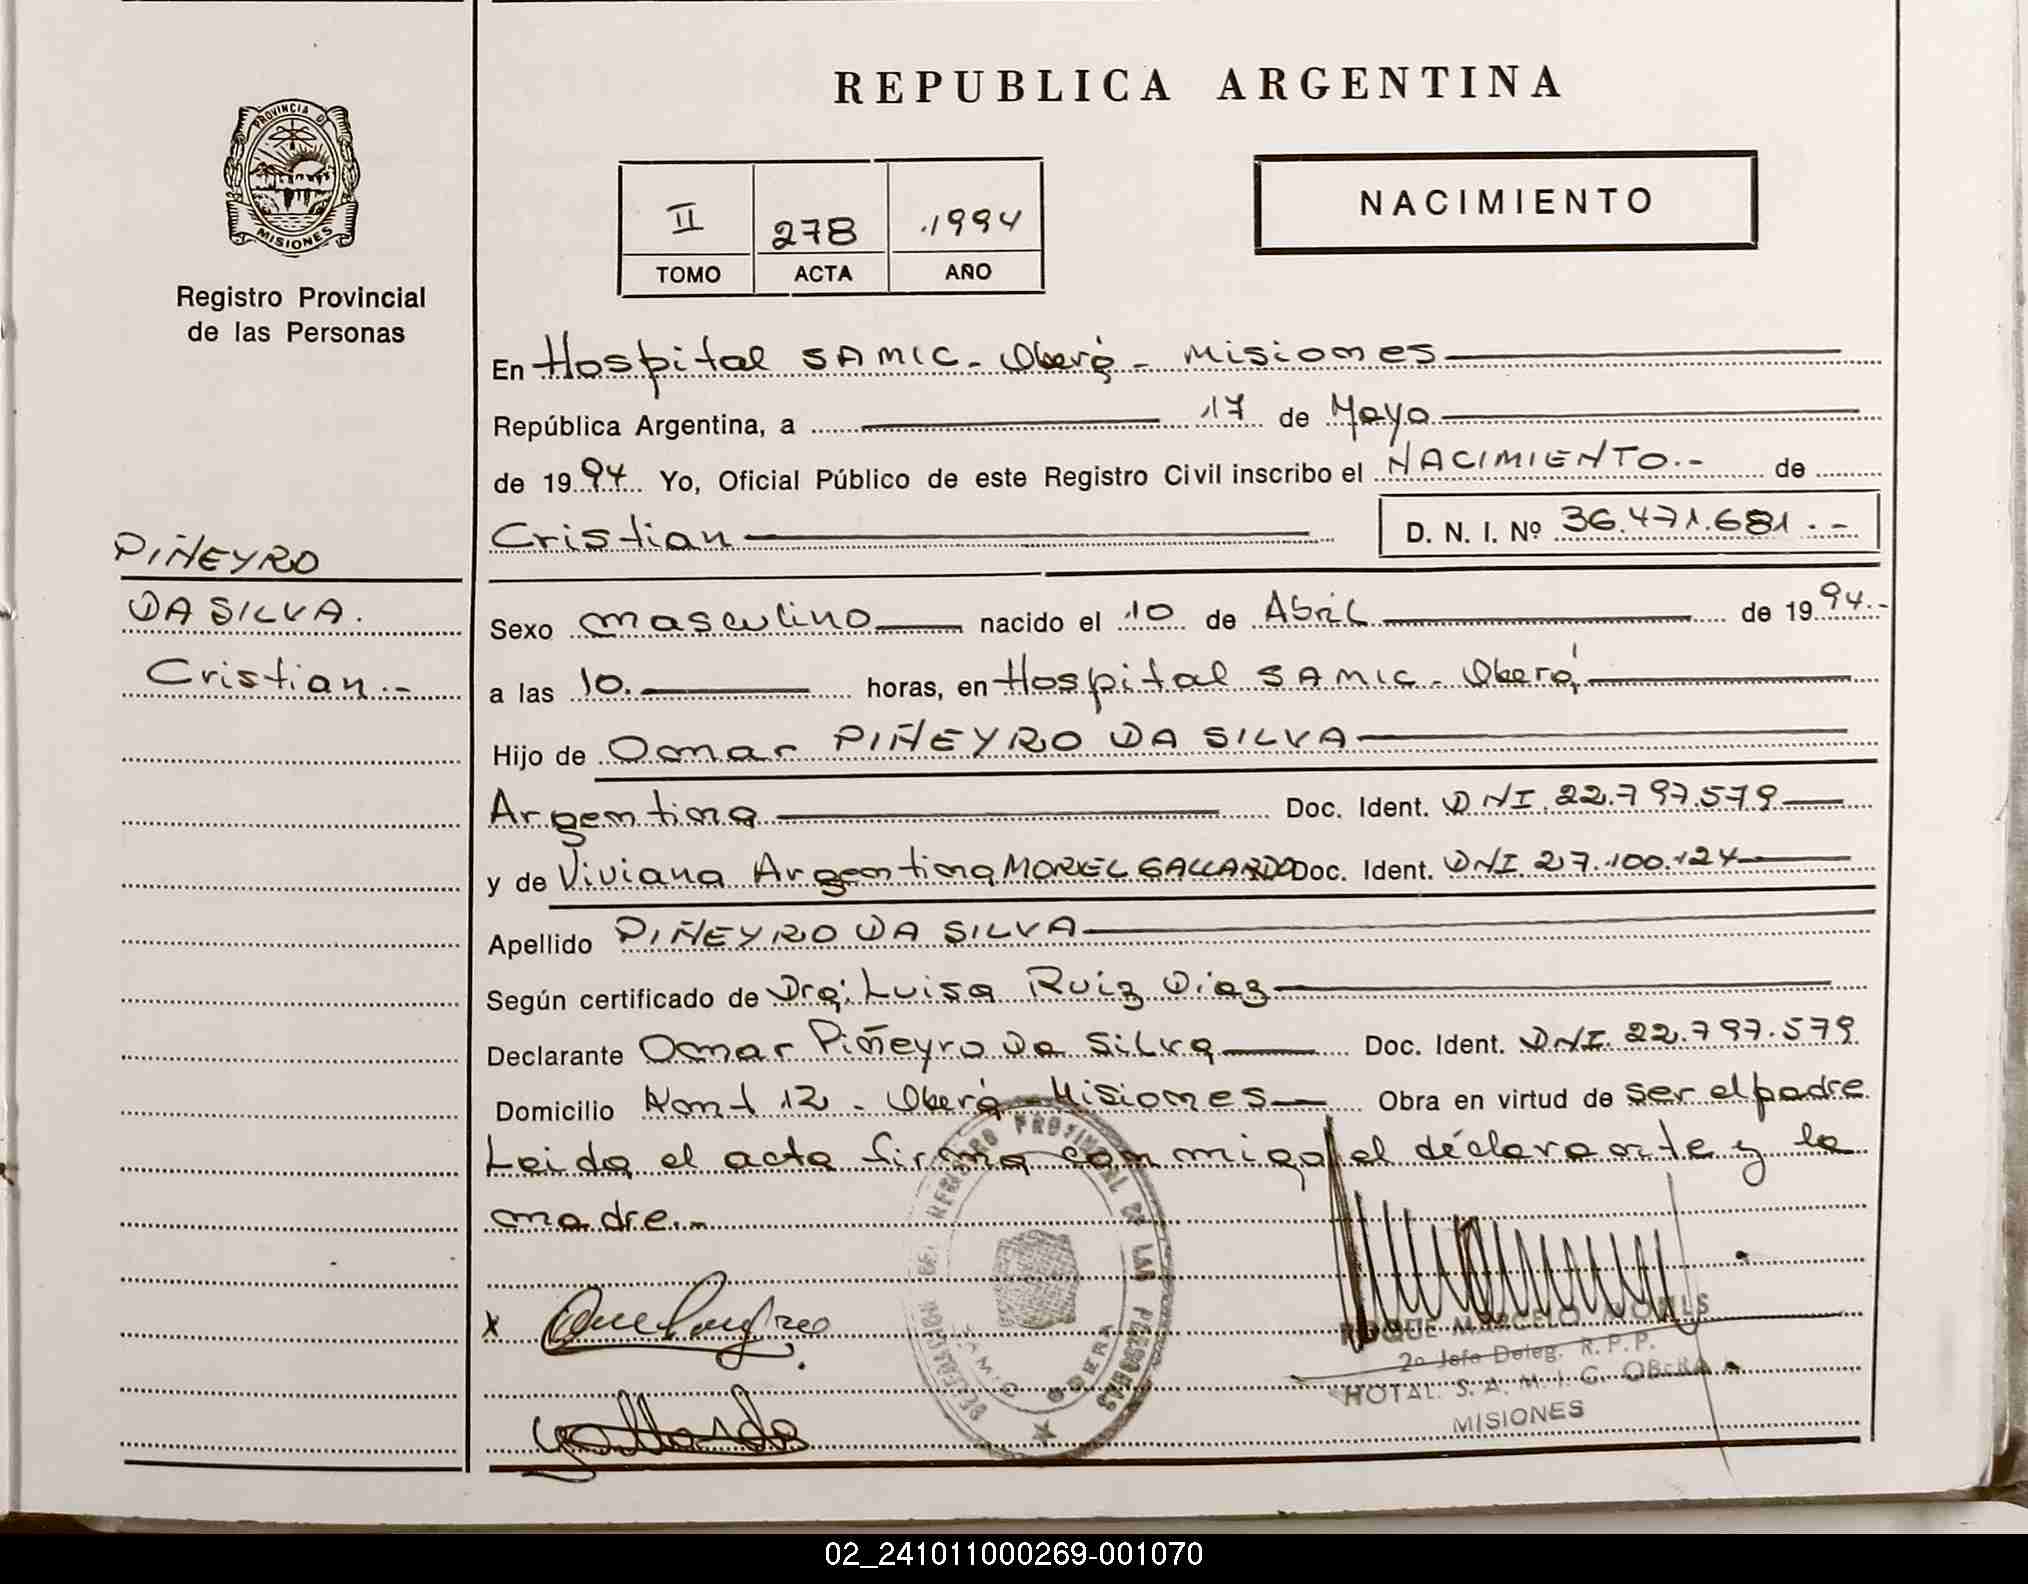 REPUBLICA ARGENTINA
PROVINCIA DE
MISIONES
Registro Provincial
de las Personas
II 278 1994
TOMO ACTA AÑO
NACIMIENTO
En Hospital SAMIC - Oberá - Misiones
República Argentina, a 17 de Mayo
de 1994 Yo, Oficial Público de este Registro Civil inscribo el NACIMIENTO.- de
Cristian D. N. I. Nº 36.471.681.-
PIÑEYRO
DA SILVA.
Cristian.-
Sexo masculino nacido el 10 de Abril de 1994.-
a las 10. horas, en Hospital SAMIC - Oberá
Hijo de Omar PIÑEYRO DA SILVA
Argentina Doc. Ident. DNI 22.797.579
y de Viviana Argentina MOREL GALLARDO Doc. Ident. DNI 27.100.124
Apellido PIÑEYRO DA SILVA
Según certificado de Dra. Luisa Ruiz Diaz
Declarante Omar Piñeyro Da Silva Doc. Ident. DNI. 22.797.579
Domicilio 12 - Oberá - Misiones Obra en virtud de ser el padre
Leida el acta firma conmigo el declarante y la
madre.-
x
REGISTRO PROVINCIAL DE LAS PERSONAS
SAMIC OBERA
ROQUE MARCELO
2º Jefe Deleg. R. P. P.
HOTAL. S. A. M. I. C. OBERA
MISIONES
02_241011000269-001070